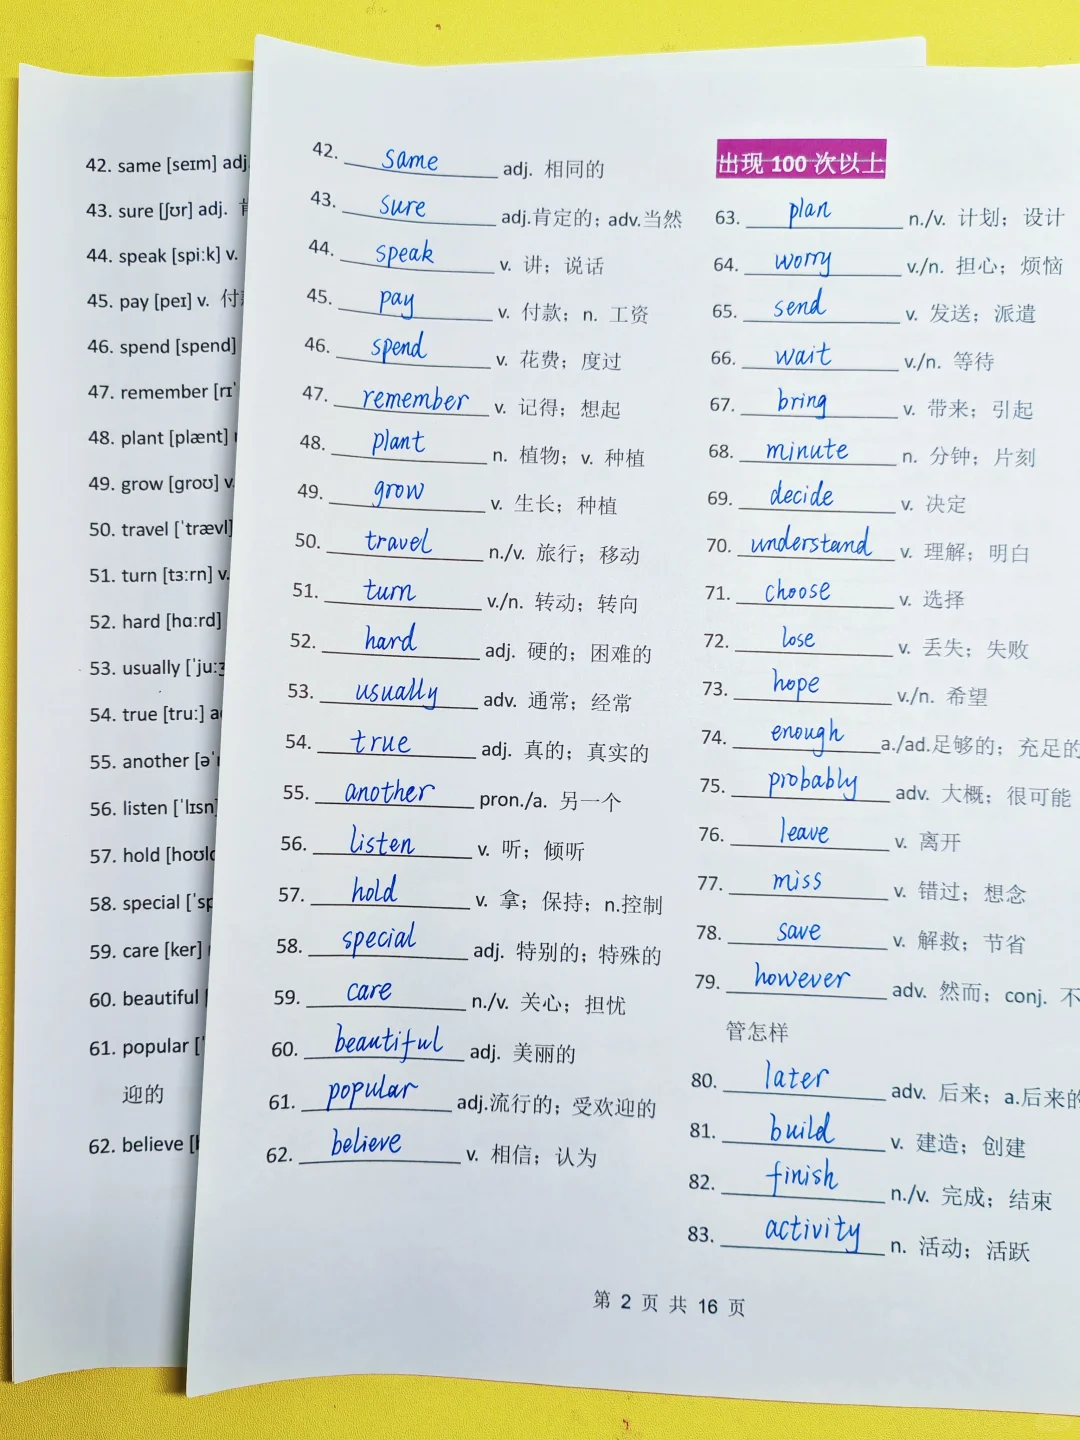 42. same [seɪm] adj
43. sure [ʃʊr] adj.
44. speak [spiːk] v.
45. pay [peɪ] v. 付
46. spend [spend]
47. remember [rɪˈ
48. plant [plænt]
49. grow [ɡroʊ] v.
50. travel [ˈtrævl]
51. turn [tɜːrn] v.
52. hard [hɑːrd]
53. usually [ˈjuːʒ
54. true [truː] a
55. another [əˈ
56. listen [ˈlɪsn]
57. hold [hoʊl
58. special [ˈsp
59. care [ker]
60. beautiful [
61. popular [ˈ
迎的
62. believe [
42. same adj. 相同的
43. sure adj.肯定的；adv.当然
44. speak v. 讲；说话
45. pay v. 付款；n. 工资
46. spend v. 花费；度过
47. remember v. 记得；想起
48. plant n. 植物；v. 种植
49. grow v. 生长；种植
50. travel n./v. 旅行；移动
51. turn v./n. 转动；转向
52. hard adj. 硬的；困难的
53. usually adv. 通常；经常
54. true adj. 真的；真实的
55. another pron./a. 另一个
56. listen v. 听；倾听
57. hold v. 拿；保持；n.控制
58. special adj. 特别的；特殊的
59. care n./v. 关心；担忧
60. beautiful adj. 美丽的
61. popular adj.流行的；受欢迎的
62. believe v. 相信；认为
出现 100 次以上
63. plan n./v. 计划；设计
64. worry v./n. 担心；烦恼
65. send v. 发送；派遣
66. wait v./n. 等待
67. bring v. 带来；引起
68. minute n. 分钟；片刻
69. decide v. 决定
70. understand v. 理解；明白
71. choose v. 选择
72. lose v. 丢失；失败
73. hope v./n. 希望
74. enough a./ad.足够的；充足的
75. probably adv. 大概；很可能
76. leave v. 离开
77. miss v. 错过；想念
78. save v. 解救；节省
79. however adv. 然而；conj. 不
管怎样
80. later adv. 后来；a.后来的
81. build v. 建造；创建
82. finish n./v. 完成；结束
83. activity n. 活动；活跃
第 2 页 共 16 页